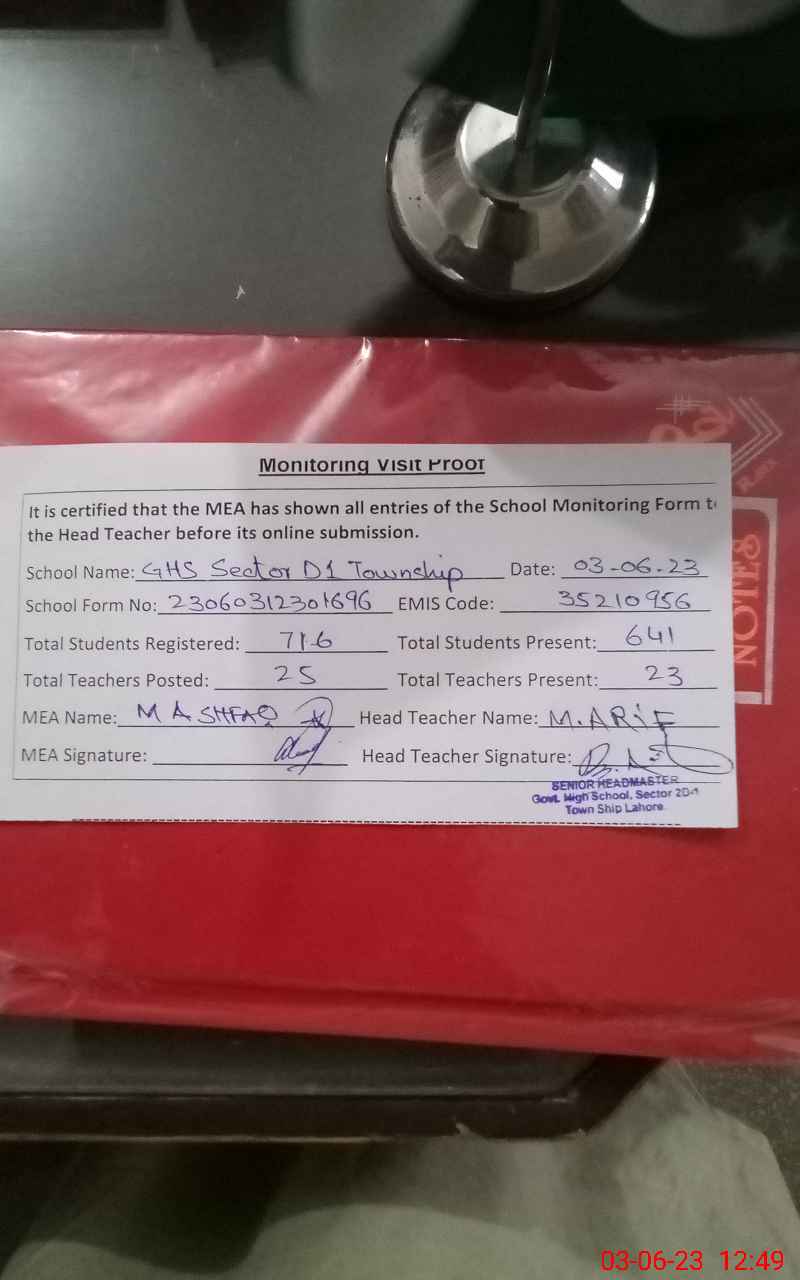 Rasa
NOTES
Monitoring Visit Proof
It is certified that the MEA has shown all entries of the School Monitoring Form t
the Head Teacher before its online submission.
School Name: GHS Sector D1 Township Date: 03-06-23
School Form No: 23060312301696 EMIS Code: 35210956
Total Students Registered: 716 Total Students Present: 641
Total Teachers Posted: 25 Total Teachers Present: 23
MEA Name: M ASHFAQ Head Teacher Name: M.ARiF
MEA Signature: Head Teacher Signature:
SENIOR HEADMASTER
Govt. High School, Sector 2D-1
Town Ship Lahore.
03-06-23 12:49